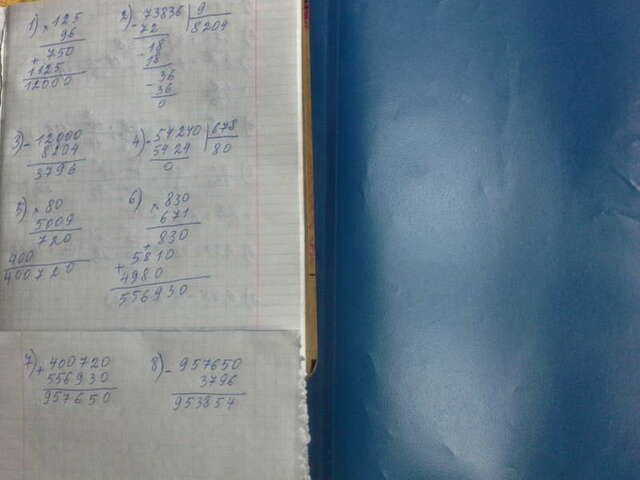 1) × 125
96
+ 750
1125
12000
2) - 73836 | 9
72 8204
- 18
18
- 36
36
0
3) - 12000
8204
3796
4) - 54240 | 678
5424 80
0
5) × 80
5009
720
400
400720
6) × 830
671
830
+ 5810
+ 4980
556930
7) + 400720
556930
957650
8) - 957650
3796
953854